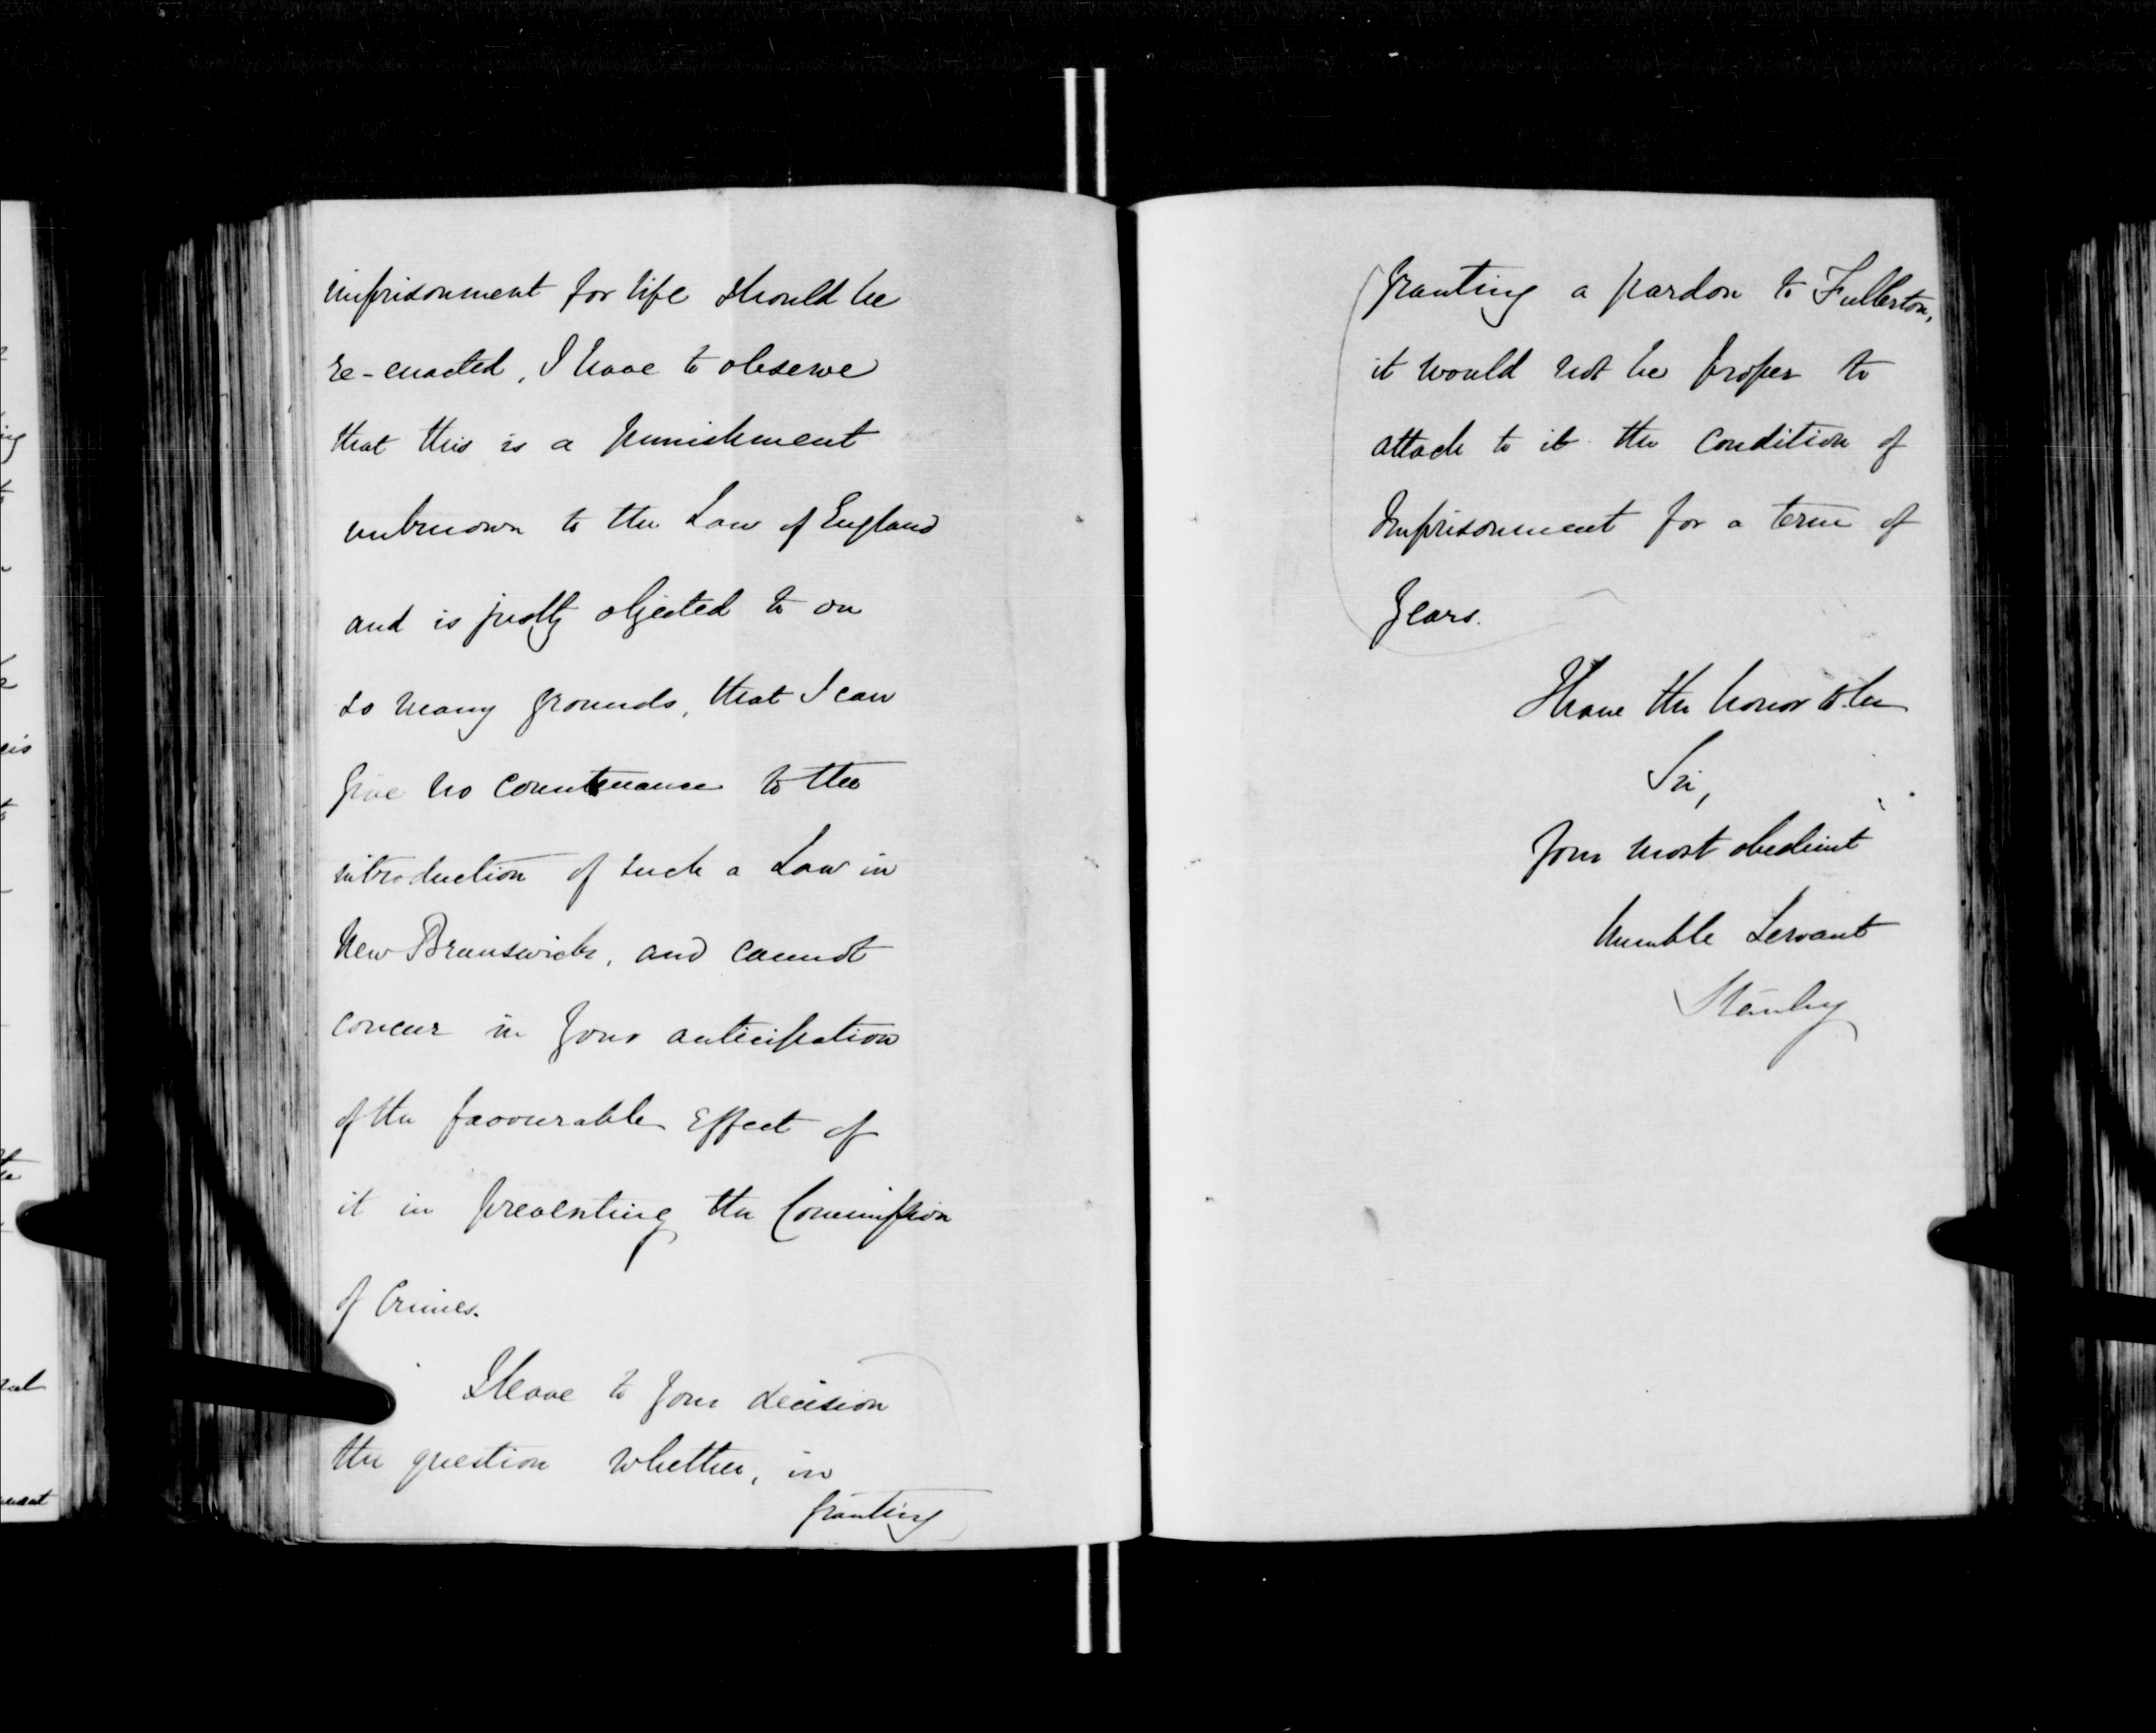 imprisonment for life should be
re-enacted, I have to observe
that this is a punishment
unknown to the Law of England
and is justly objected to on
so many grounds, that I can
give no countenance to the
introduction of such a Law in
New Brunswick, and cannot
concur in your anticipation
of the favourable Effect of
it in preventing the Commission
of Crimes.
I leave to your decision
the question whether, in
granting
granting a pardon to Fullerton,
it would not be proper to
attach to it the condition of
Imprisonment for a term of
Years.
I have the honor to be
Sir,
Your most obedient
humble Servant
Stanley